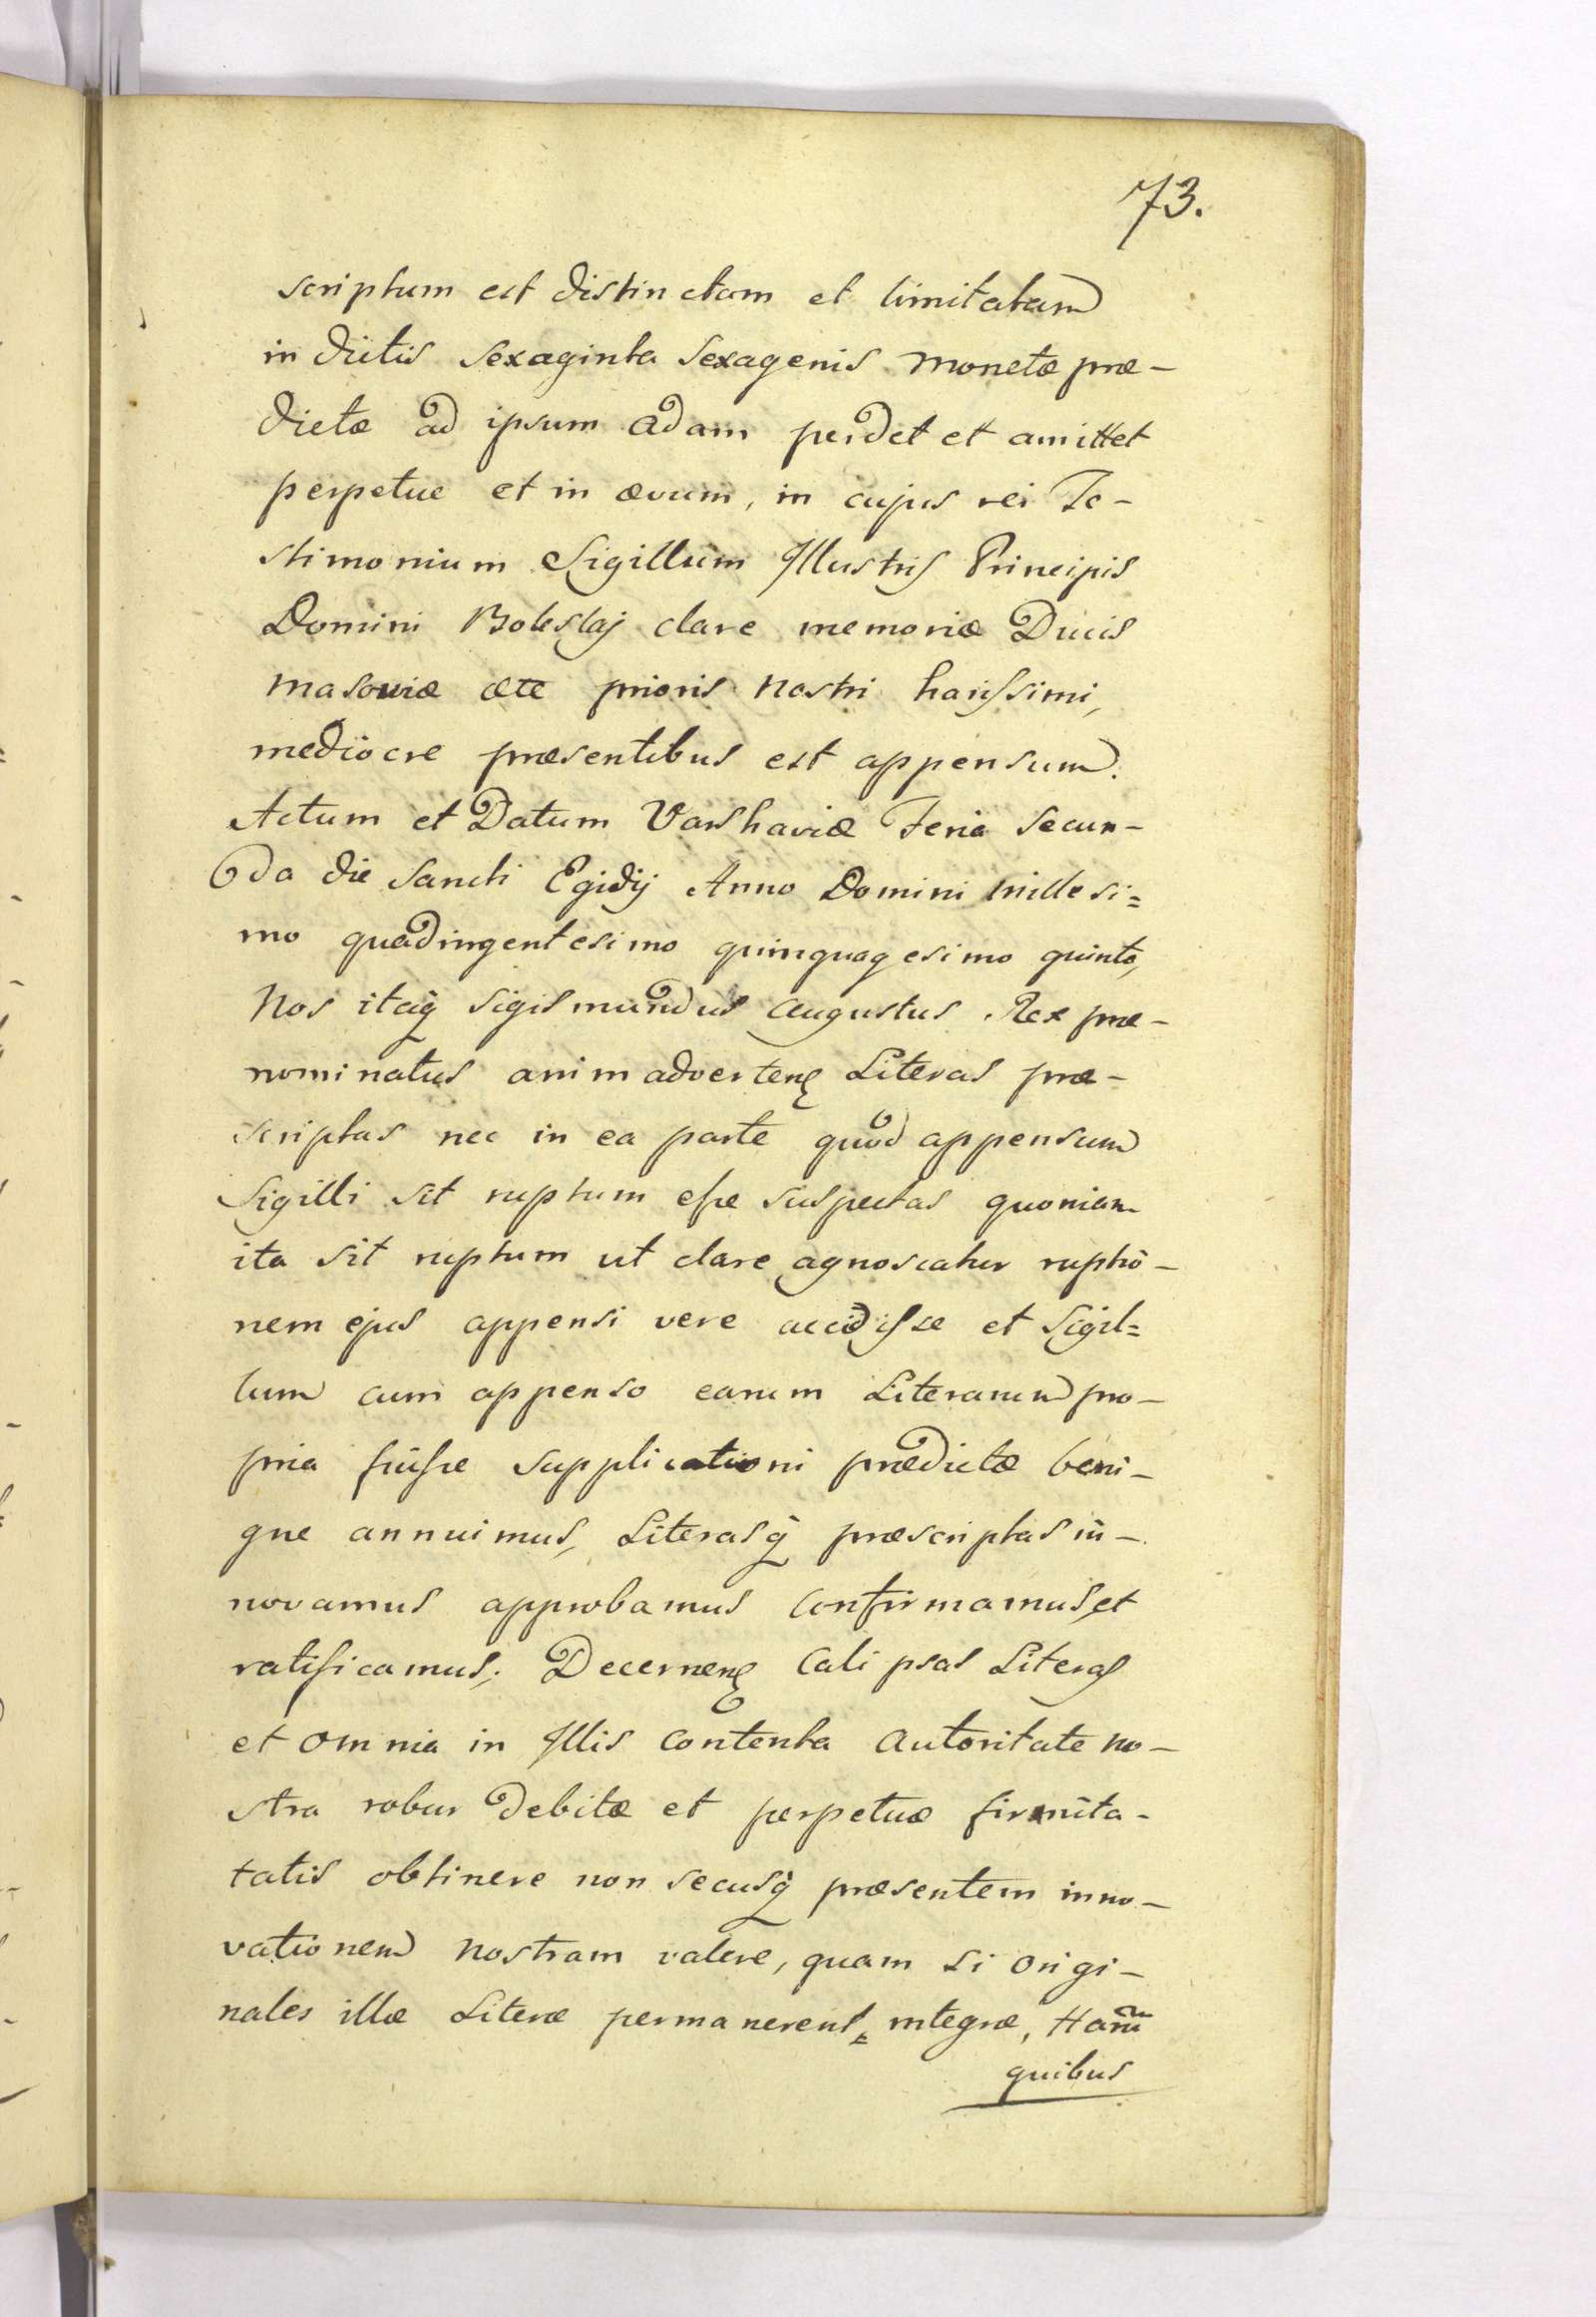 73.
scriptum est distinctam et limitatam
in dictis sexaginta sexagenis monetæ præ-
dictæ ad ipsum Adam perdet et amittet
perpetue et in ævum, in cujus rei Te-
stimonium Sigillum Illustris Principis
Domini Boleslaj clare memoriæ Ducis
masoviæ prioris nostri harissimi,
mediocre præsentibus est appensum.
Actum et Datum Varshaviæ Feria secun-
da die Sancti Egidij Anno Domini mille si=
mo quadingentesimo quinquagesimo quinto,
Nos itaq̃ Sigismundus Augustus Rex præ-
nominatus animadvertens Literas præ-
scriptas nec in ea parte quod appensum
Sigilli sit ruptum esse suspectas quoniam
ita sit ruptum ut clare agnoscatur ruptio-
nem ejus appensi vere accidisse et Sigil=
lum cum appenso earum Literarum pro-
pria fuisse supplicationi prædictæ beni-
gne annuimus, Literasq̃ præscriptas in-
novamus approbamus confirmamus et
ratificamus; Decernens Calipsas Literas
et omnia in Illis contenta autoritate no-
stra robur debitæ et perpetuæ firmita-
tatis obtinere non secusq̃ præsentem inno-
vationem nostram valere, quam si origi-
nales illæ Literæ permanerent integræ, Harũ
quibus